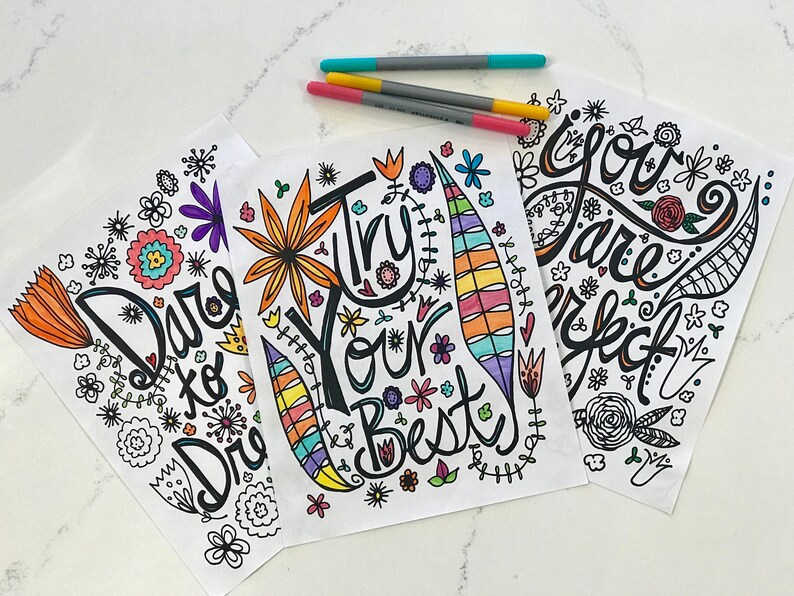 Dare
to
Dre
Try
Your
Best
you
are
erfect